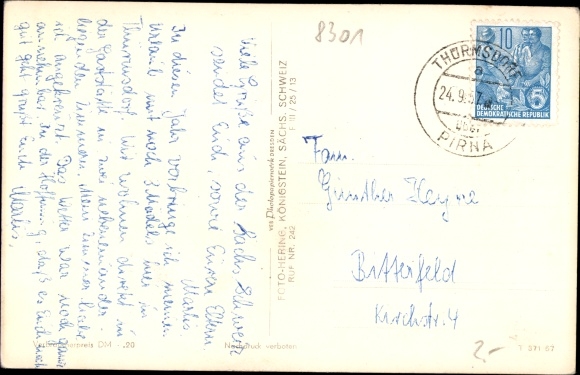 8301
THÜRMSDORF
a
24.9.57
über
PIRNA
10
5
DEUTSCHE
DEMOKRATISCHE REPUBLIK
Viele Grüße aus der Sächs. Schweiz
sendet Euch, sowie Euren Eltern
Marlis.
In diesem Jahr verbringe ich meinen
Urlaub mit noch 3 Mädels hier in
Thürmsdorf. Wir wohnen direkt in
der Gaststätte in zwei nebeneinander
liegenden Zimmern. Mein Zimmer habe
ich angekreuzt. Das Wetter war noch ganz
annehmbar. In der Hoffnung, daß es Euch noch
gut geht grüßt Euch Marlis.
VEB Photopapierwerk DRESDEN
FOTO-HERING, KÖNIGSTEIN, SÄCHS. SCHWEIZ
RUF NR. 242 III / 25 / 13
Fam.
Günther Heyne
Bitterfeld
Kirchstr. 4
DM -.20
Nachdruck verboten
2.-
271 57